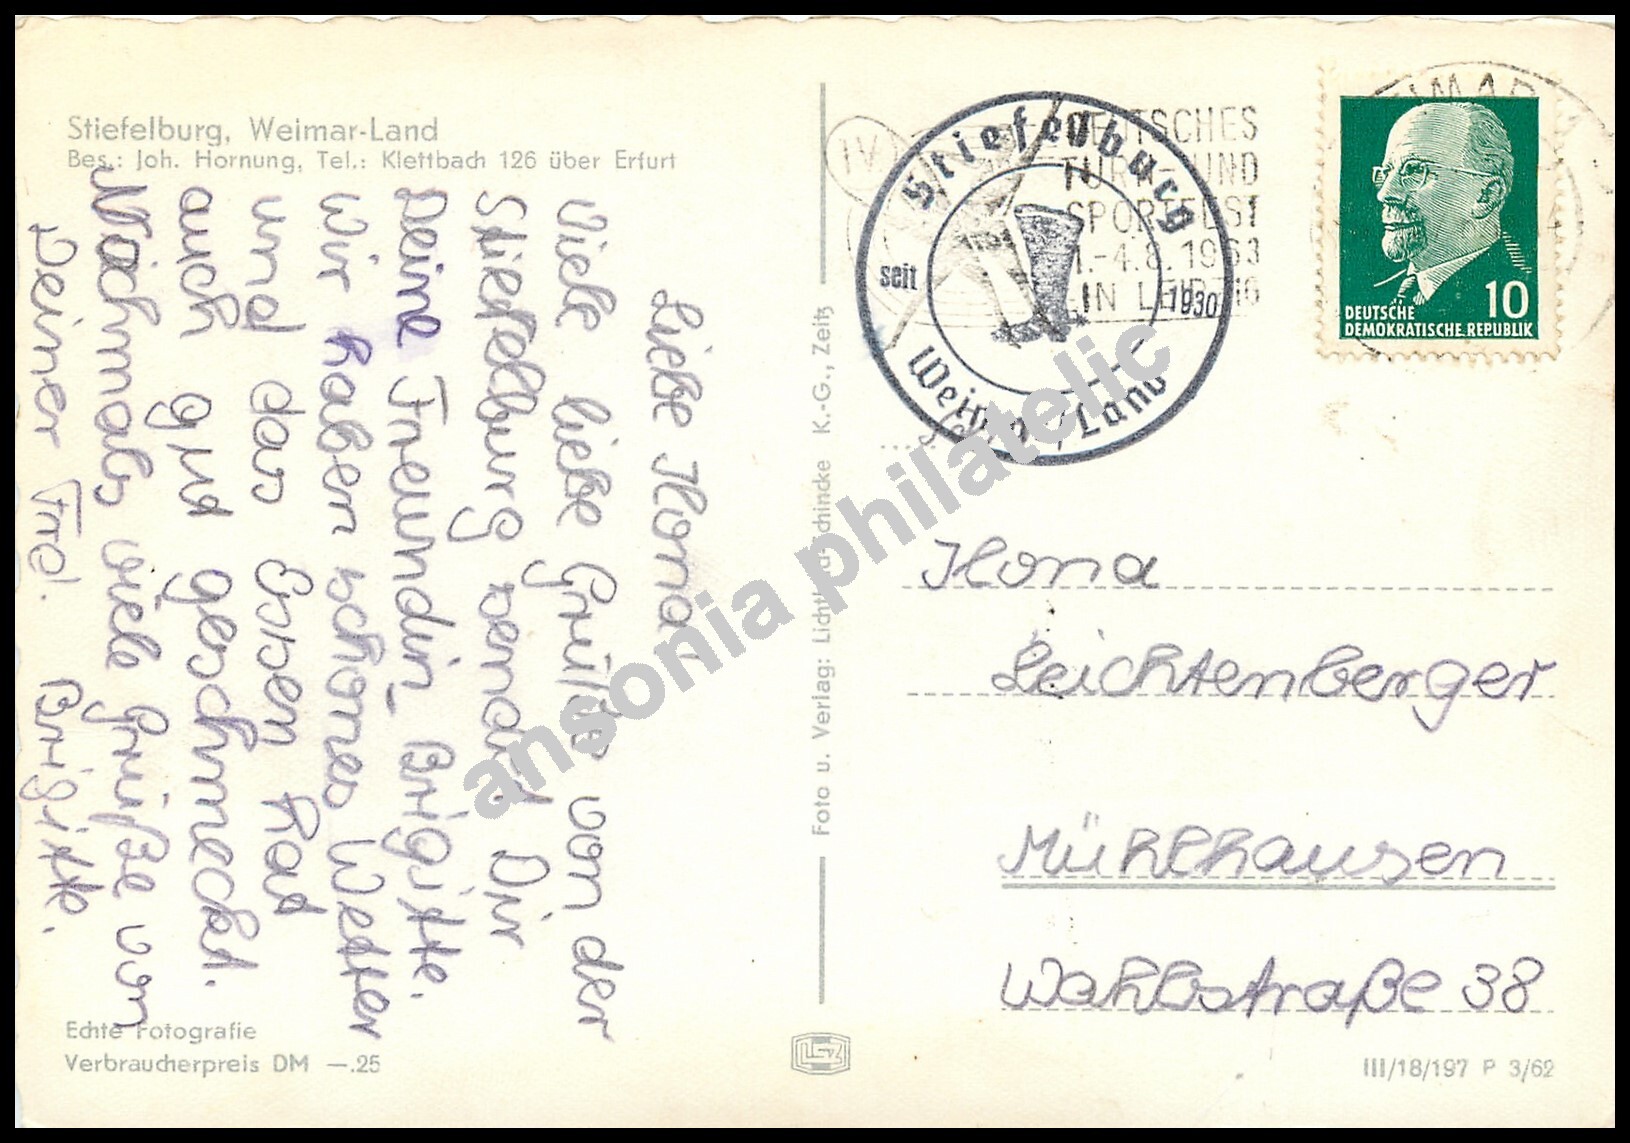 Stiefelburg, Weimar-Land
Bes.: Joh. Hornung, Tel.: Klettbach 126 über Erfurt
Liebe Ilona!
Viele liebe Grüße von der
Stiefelburg sendet Dir
Deine Freundin Brigitte.
Wir haben schönes Wetter
und das Essen hat
auch gut geschmeckt.
Nochmals viele Grüße von
Deiner Brigitte.
Echte Fotografie
Verbraucherpreis DM —.25
Foto u. Verlag: Lichtbildschincke K.-G., Zeitz
IV. DEUTSCHES
TURN- UND
SPORTFEST
1.-4.8.1963
IN LEIPZIG
Stiefelburg
seit 1930
Weimar/Land
WEIMAR
10
DEUTSCHE
DEMOKRATISCHE REPUBLIK
Ilona
Leichtenberger
Mühlhausen
Wahlsstraße 38
III/18/197 P 3/62
ansonia philatelic